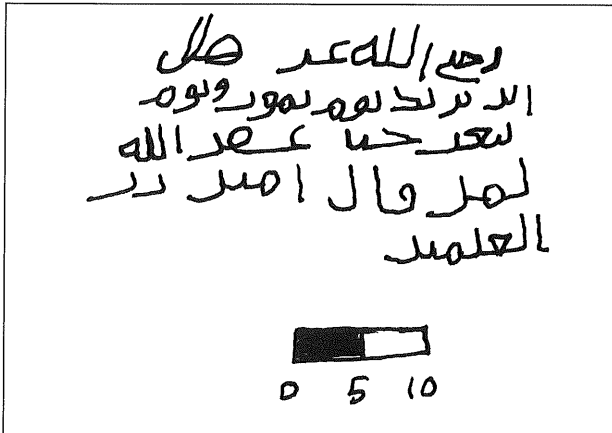 رضي الله عن هلل
ابن يزيد يوم يموت ويوم
يبعث حيا غفر الله
لمن قال امين رب
العلمين
0 5 10